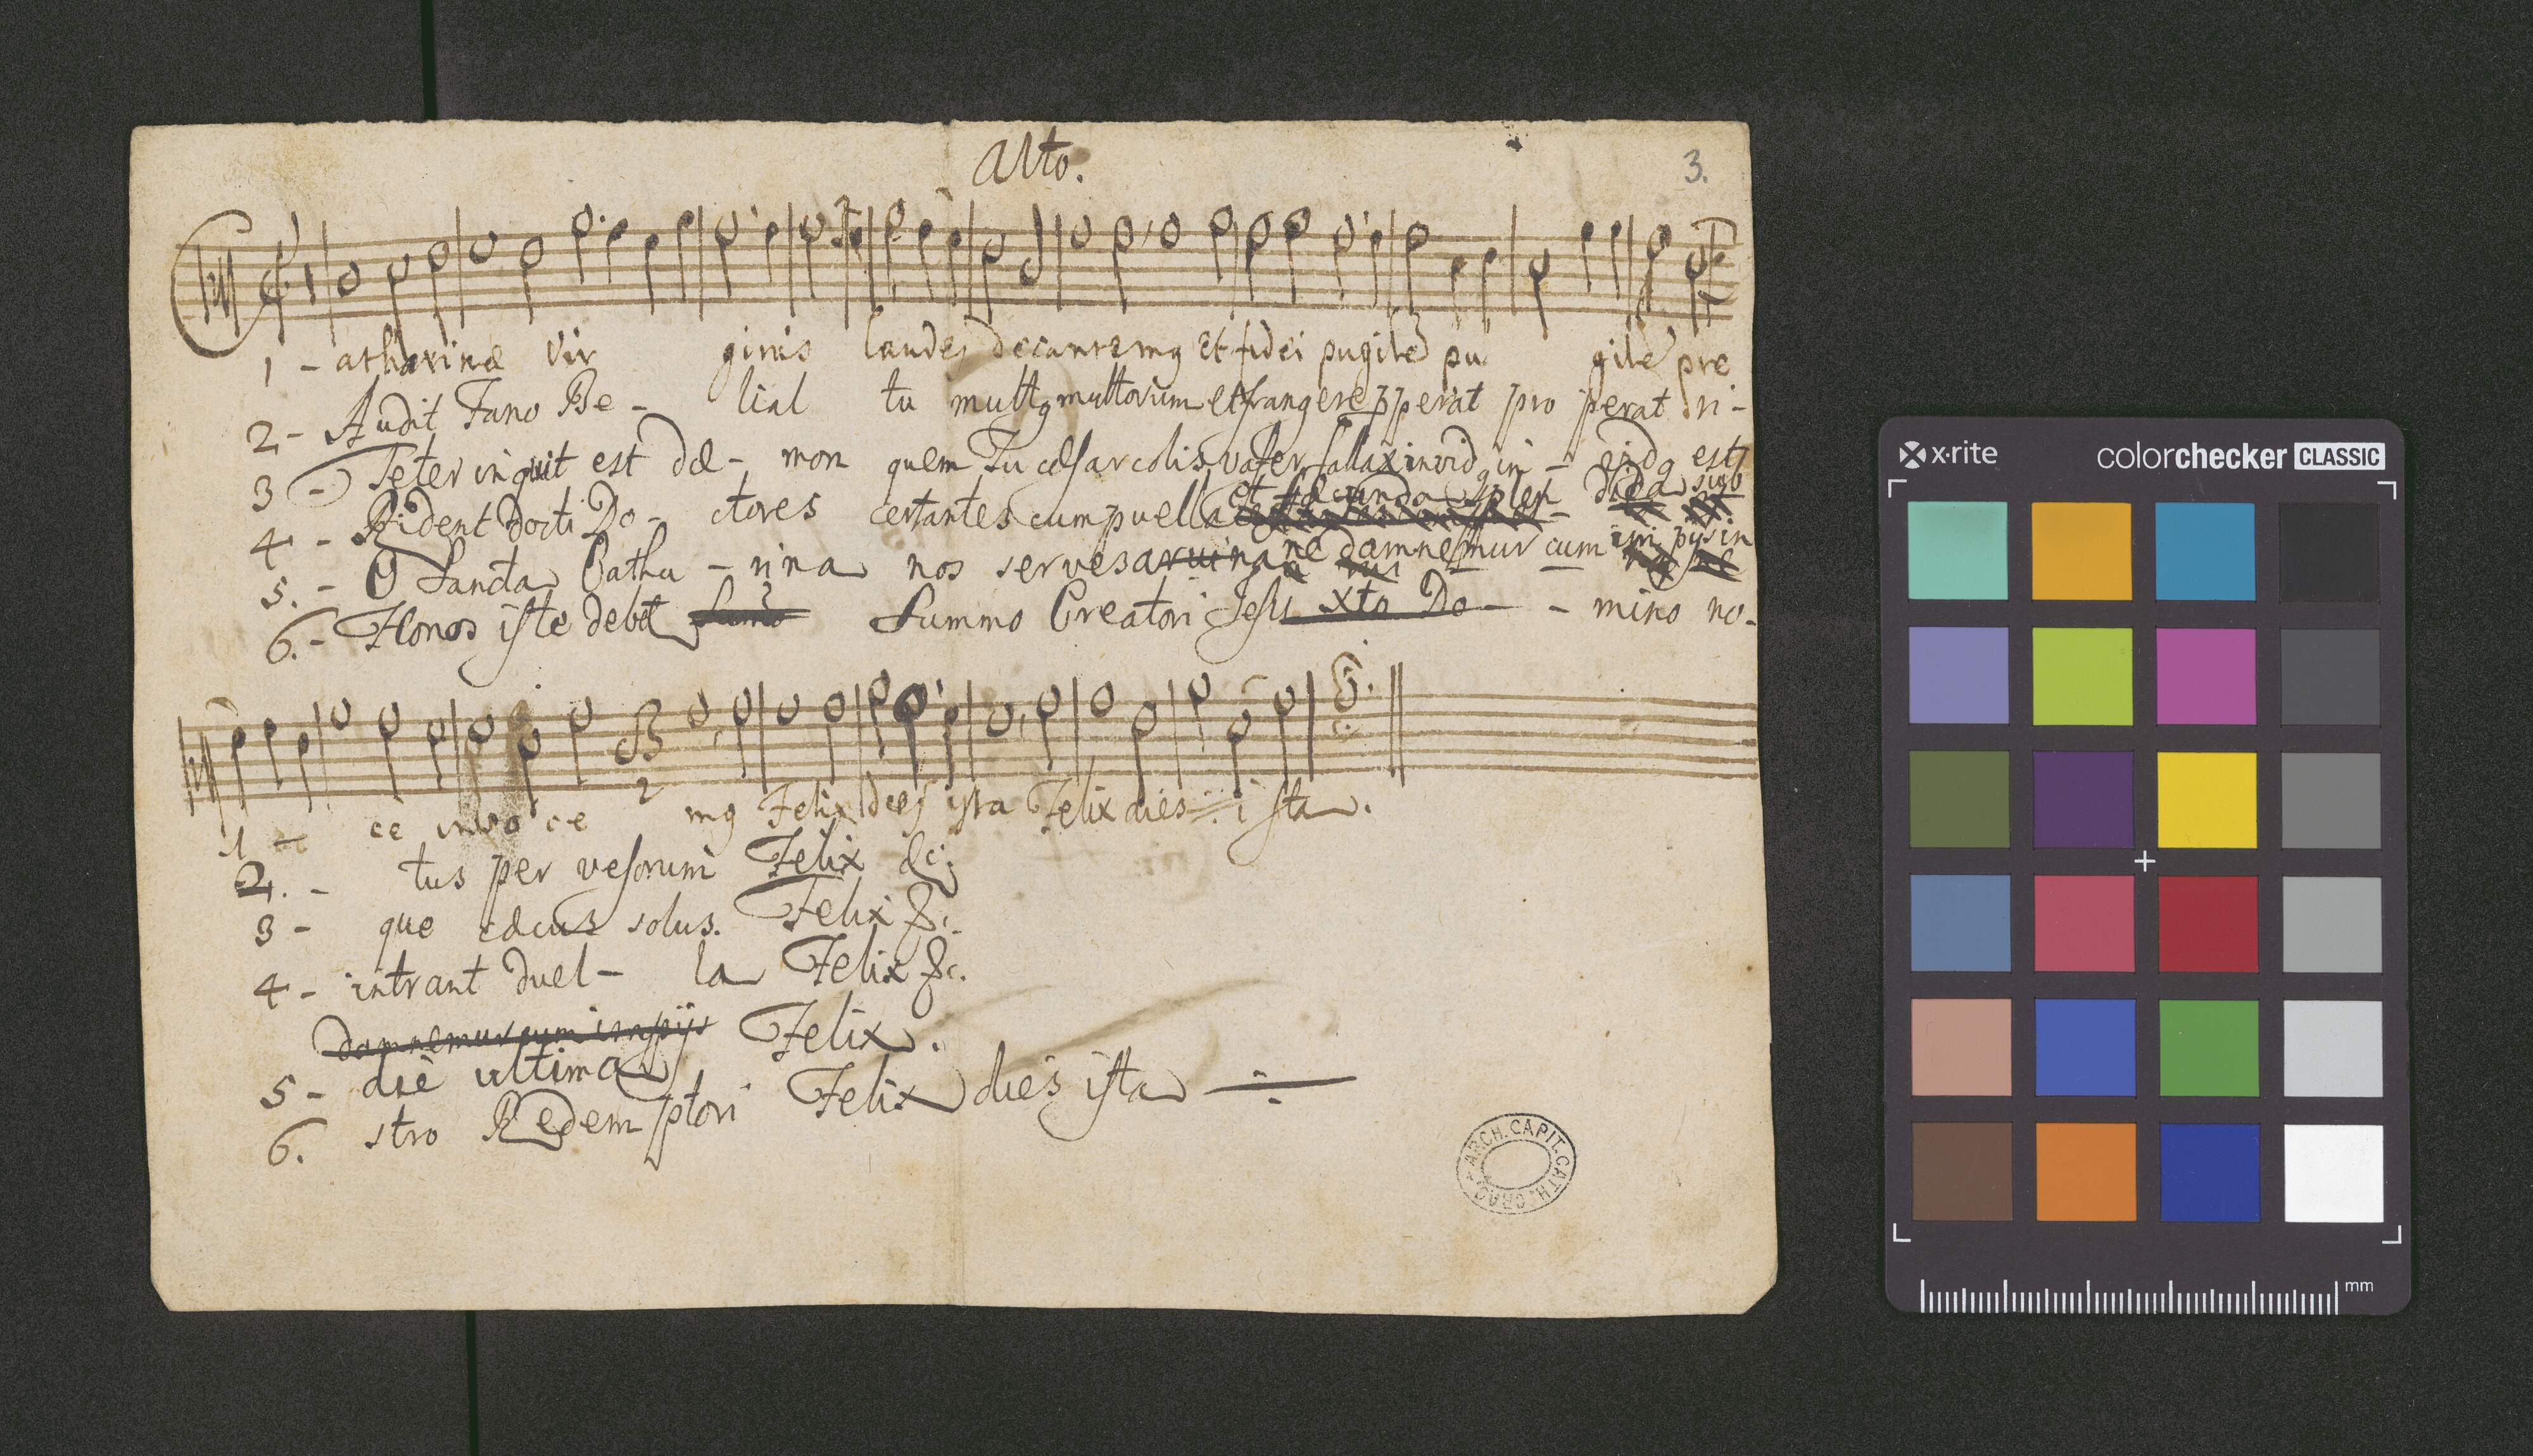 Alto.
3.
1 - atharinæ Vir ginis laudes decantemꝯ Et fidei pugilē pu gilē pre
2 - Audit Fano Be - lial tu multꝯ multorum et frangere pperat pro perat vi -
3 - Teter inquit est dæ - mon quem Tu cæsar colis, vafer fallax invidꝯ in - vidꝯ est
4 - Rident Docti Do - ctores certantes cum puella et secunda splen - dida sub
5. - O Sancta Catha - rina nos serves a ruina nè damnemur cum im pijs in
6. - Honos iste debet Summo Creatori Jesu xto Do - - mino no -
1 - ce invo ce mꝯ Felix dies ista Felix dies i sta.
2. - tus per vesorum Felix &c;
3 - que cæcus solus. Felix &c.
4 - intrant duel - la Felix &c.
damnemur cum impijs Felix.
5 - die ultima
6. stro Redem ptori Felix dies ista
ARCH. CAPIT. CATH. CRAC.
x·rite colorchecker CLASSIC
mm